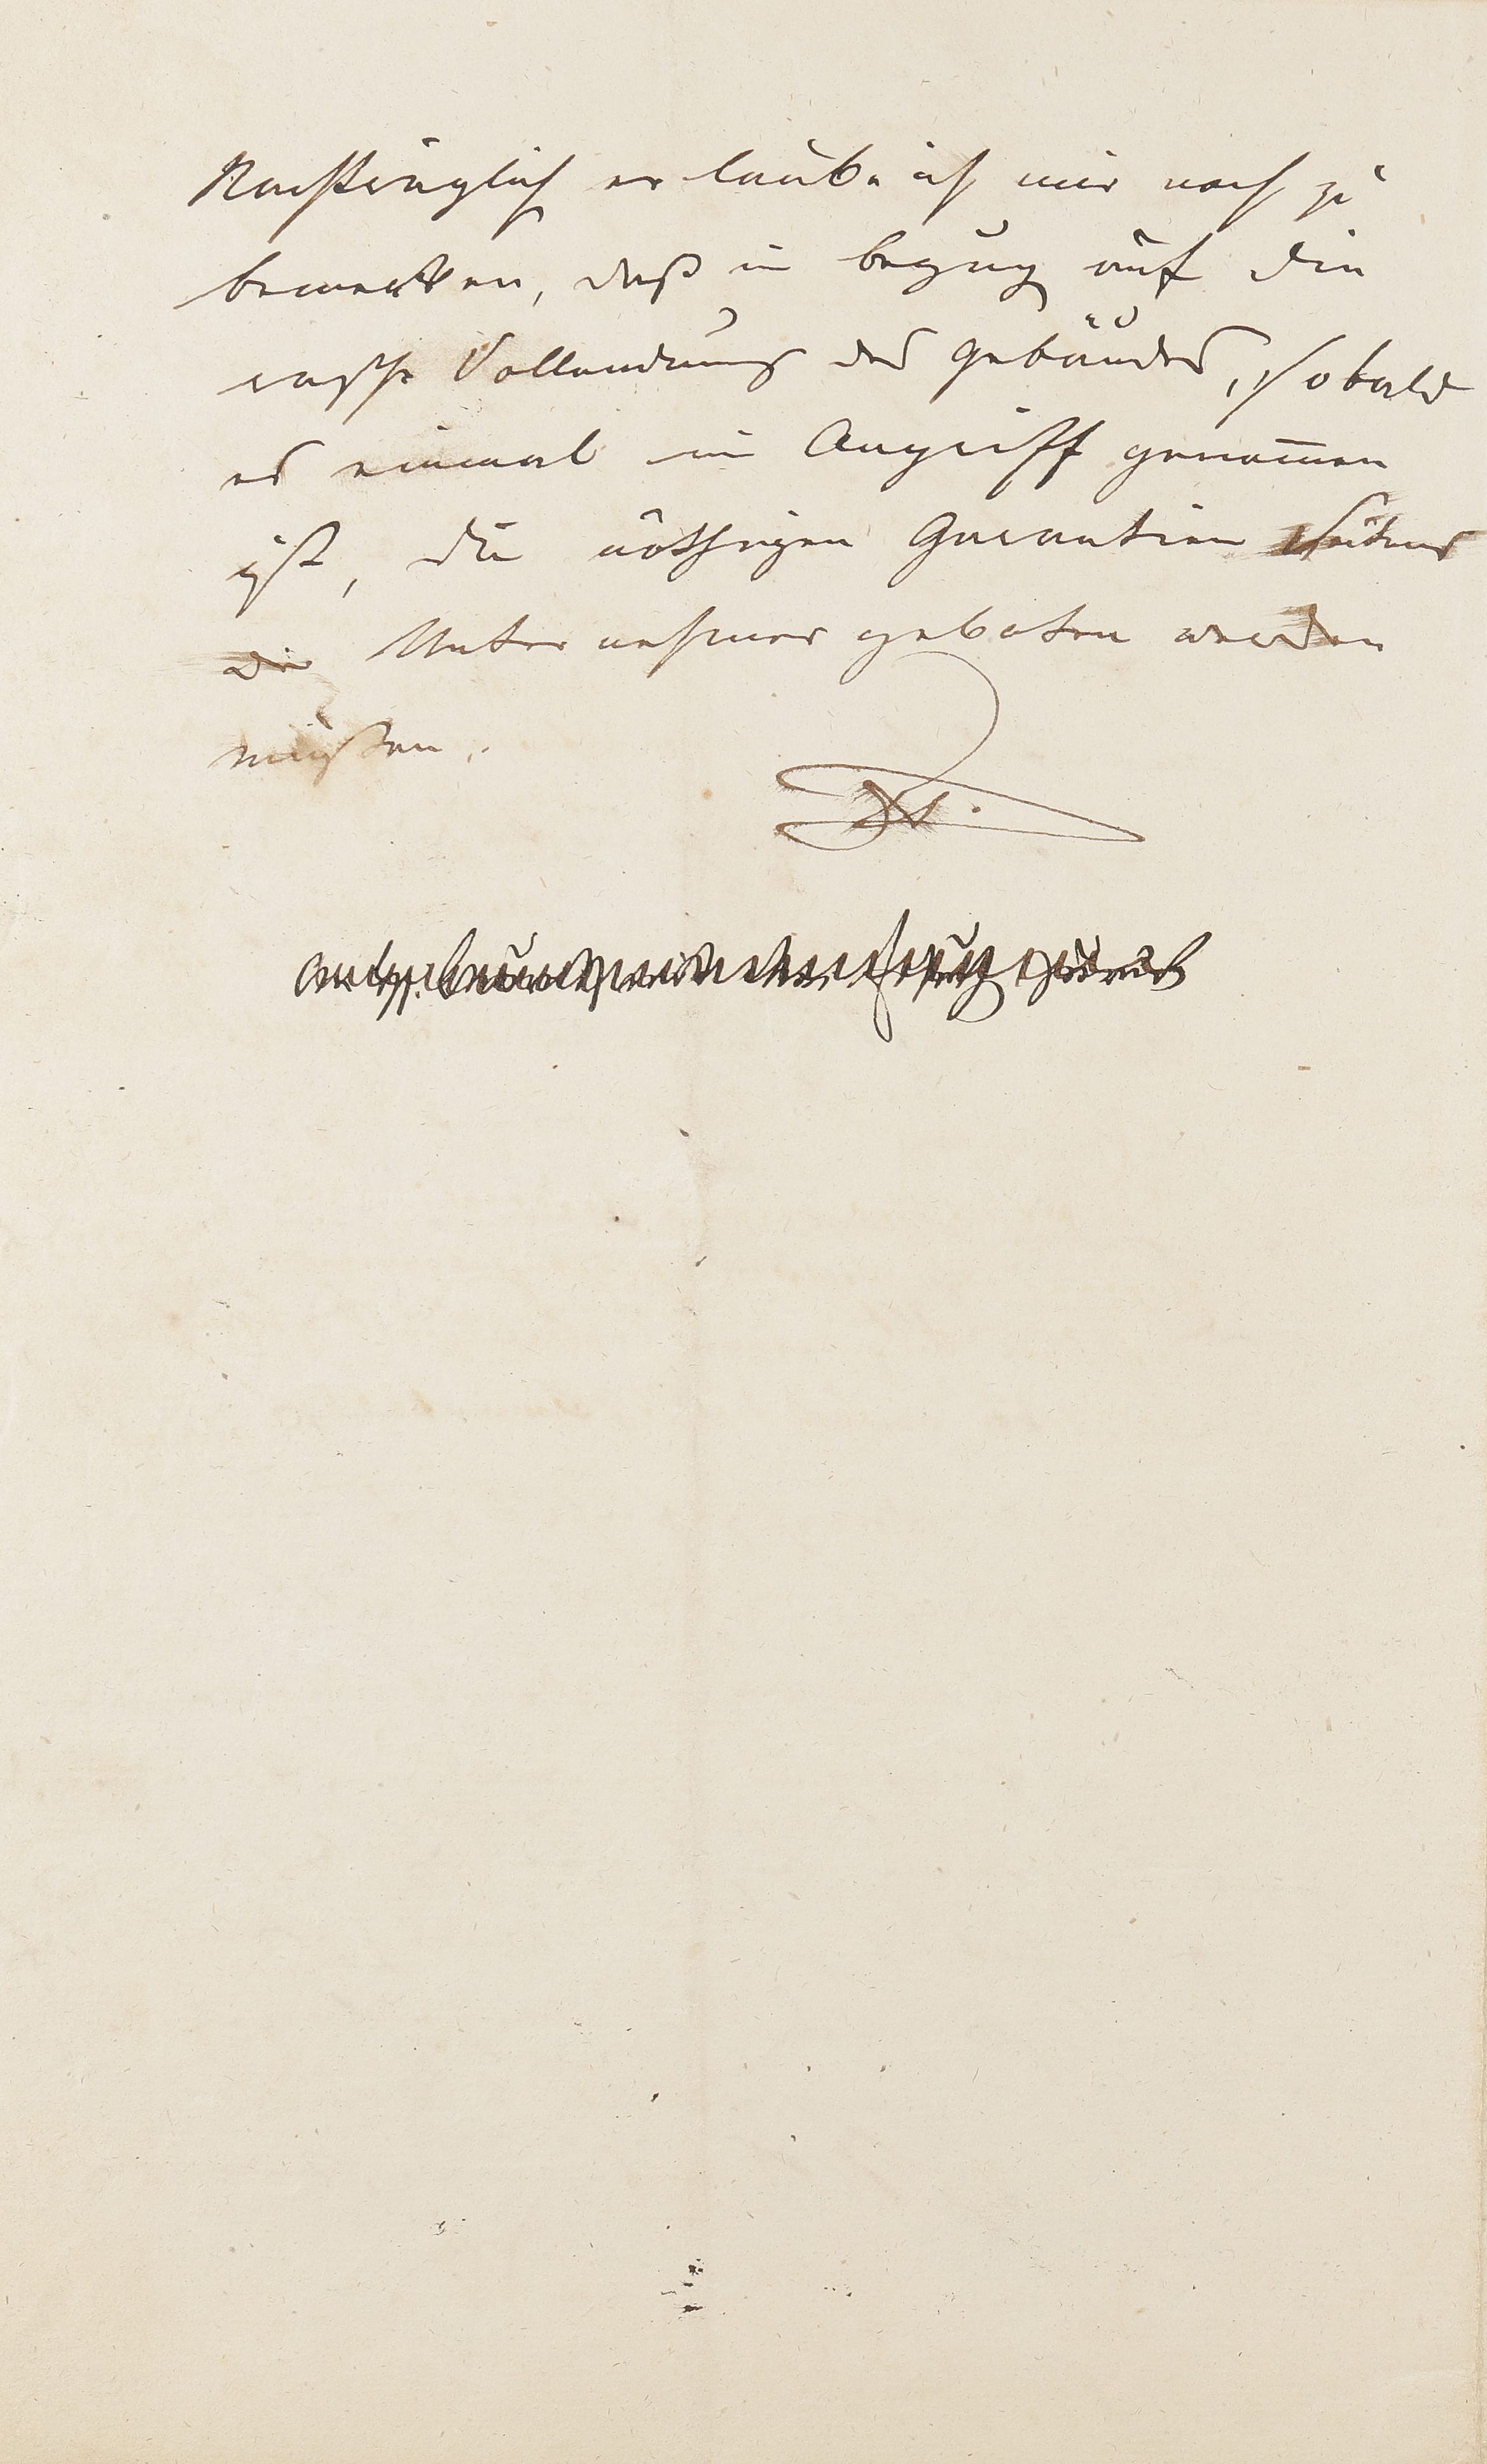 Nachträglich erlaube ich mir noch zu
bemerken, daß in bezug auf die
rasche Vollendung des Gebäudes, sobald
es einmal in Angriff genom̅en
ist, die nöthigen Garantien Seitens
der Unternehmer geboten werden
müßen.